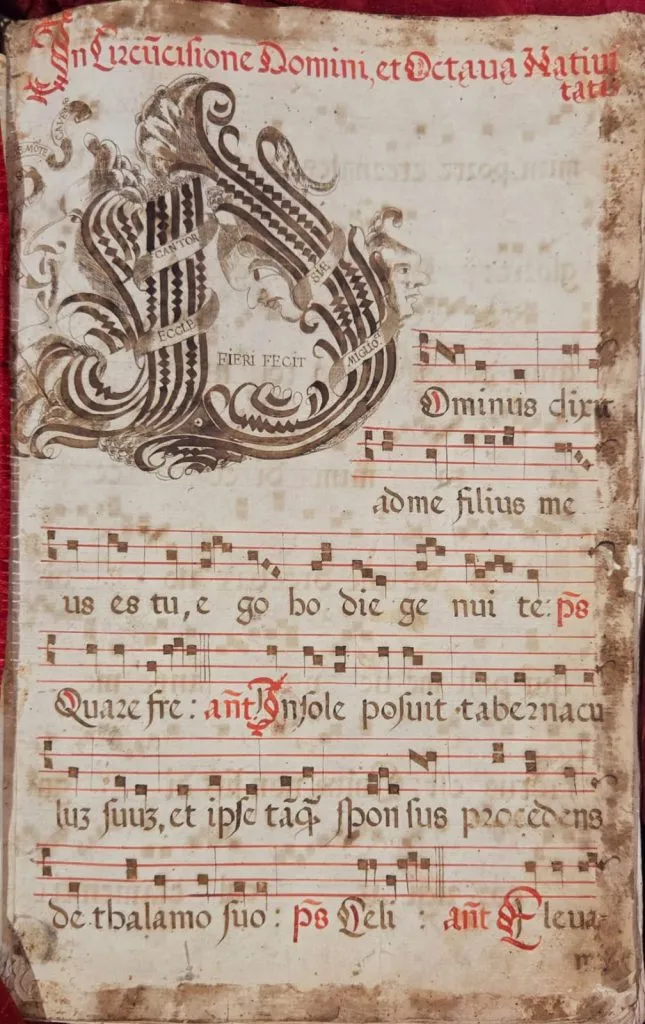 In Circūcisione Domini, et Octaua Natiui
tatis
CANTOR
ECCLE
SIÆ
FIERI FECIT
MIGLIO.
Ominus dixit
ad me filius me
us es tu, e go ho die ge nui te: p̄s
Quare fre: añt In sole posuit tabernacu
luʒ suuʒ, et ipse tāq̄ spon sus procedens
de thalamo suo: p̄s Celi: añt Eleva-